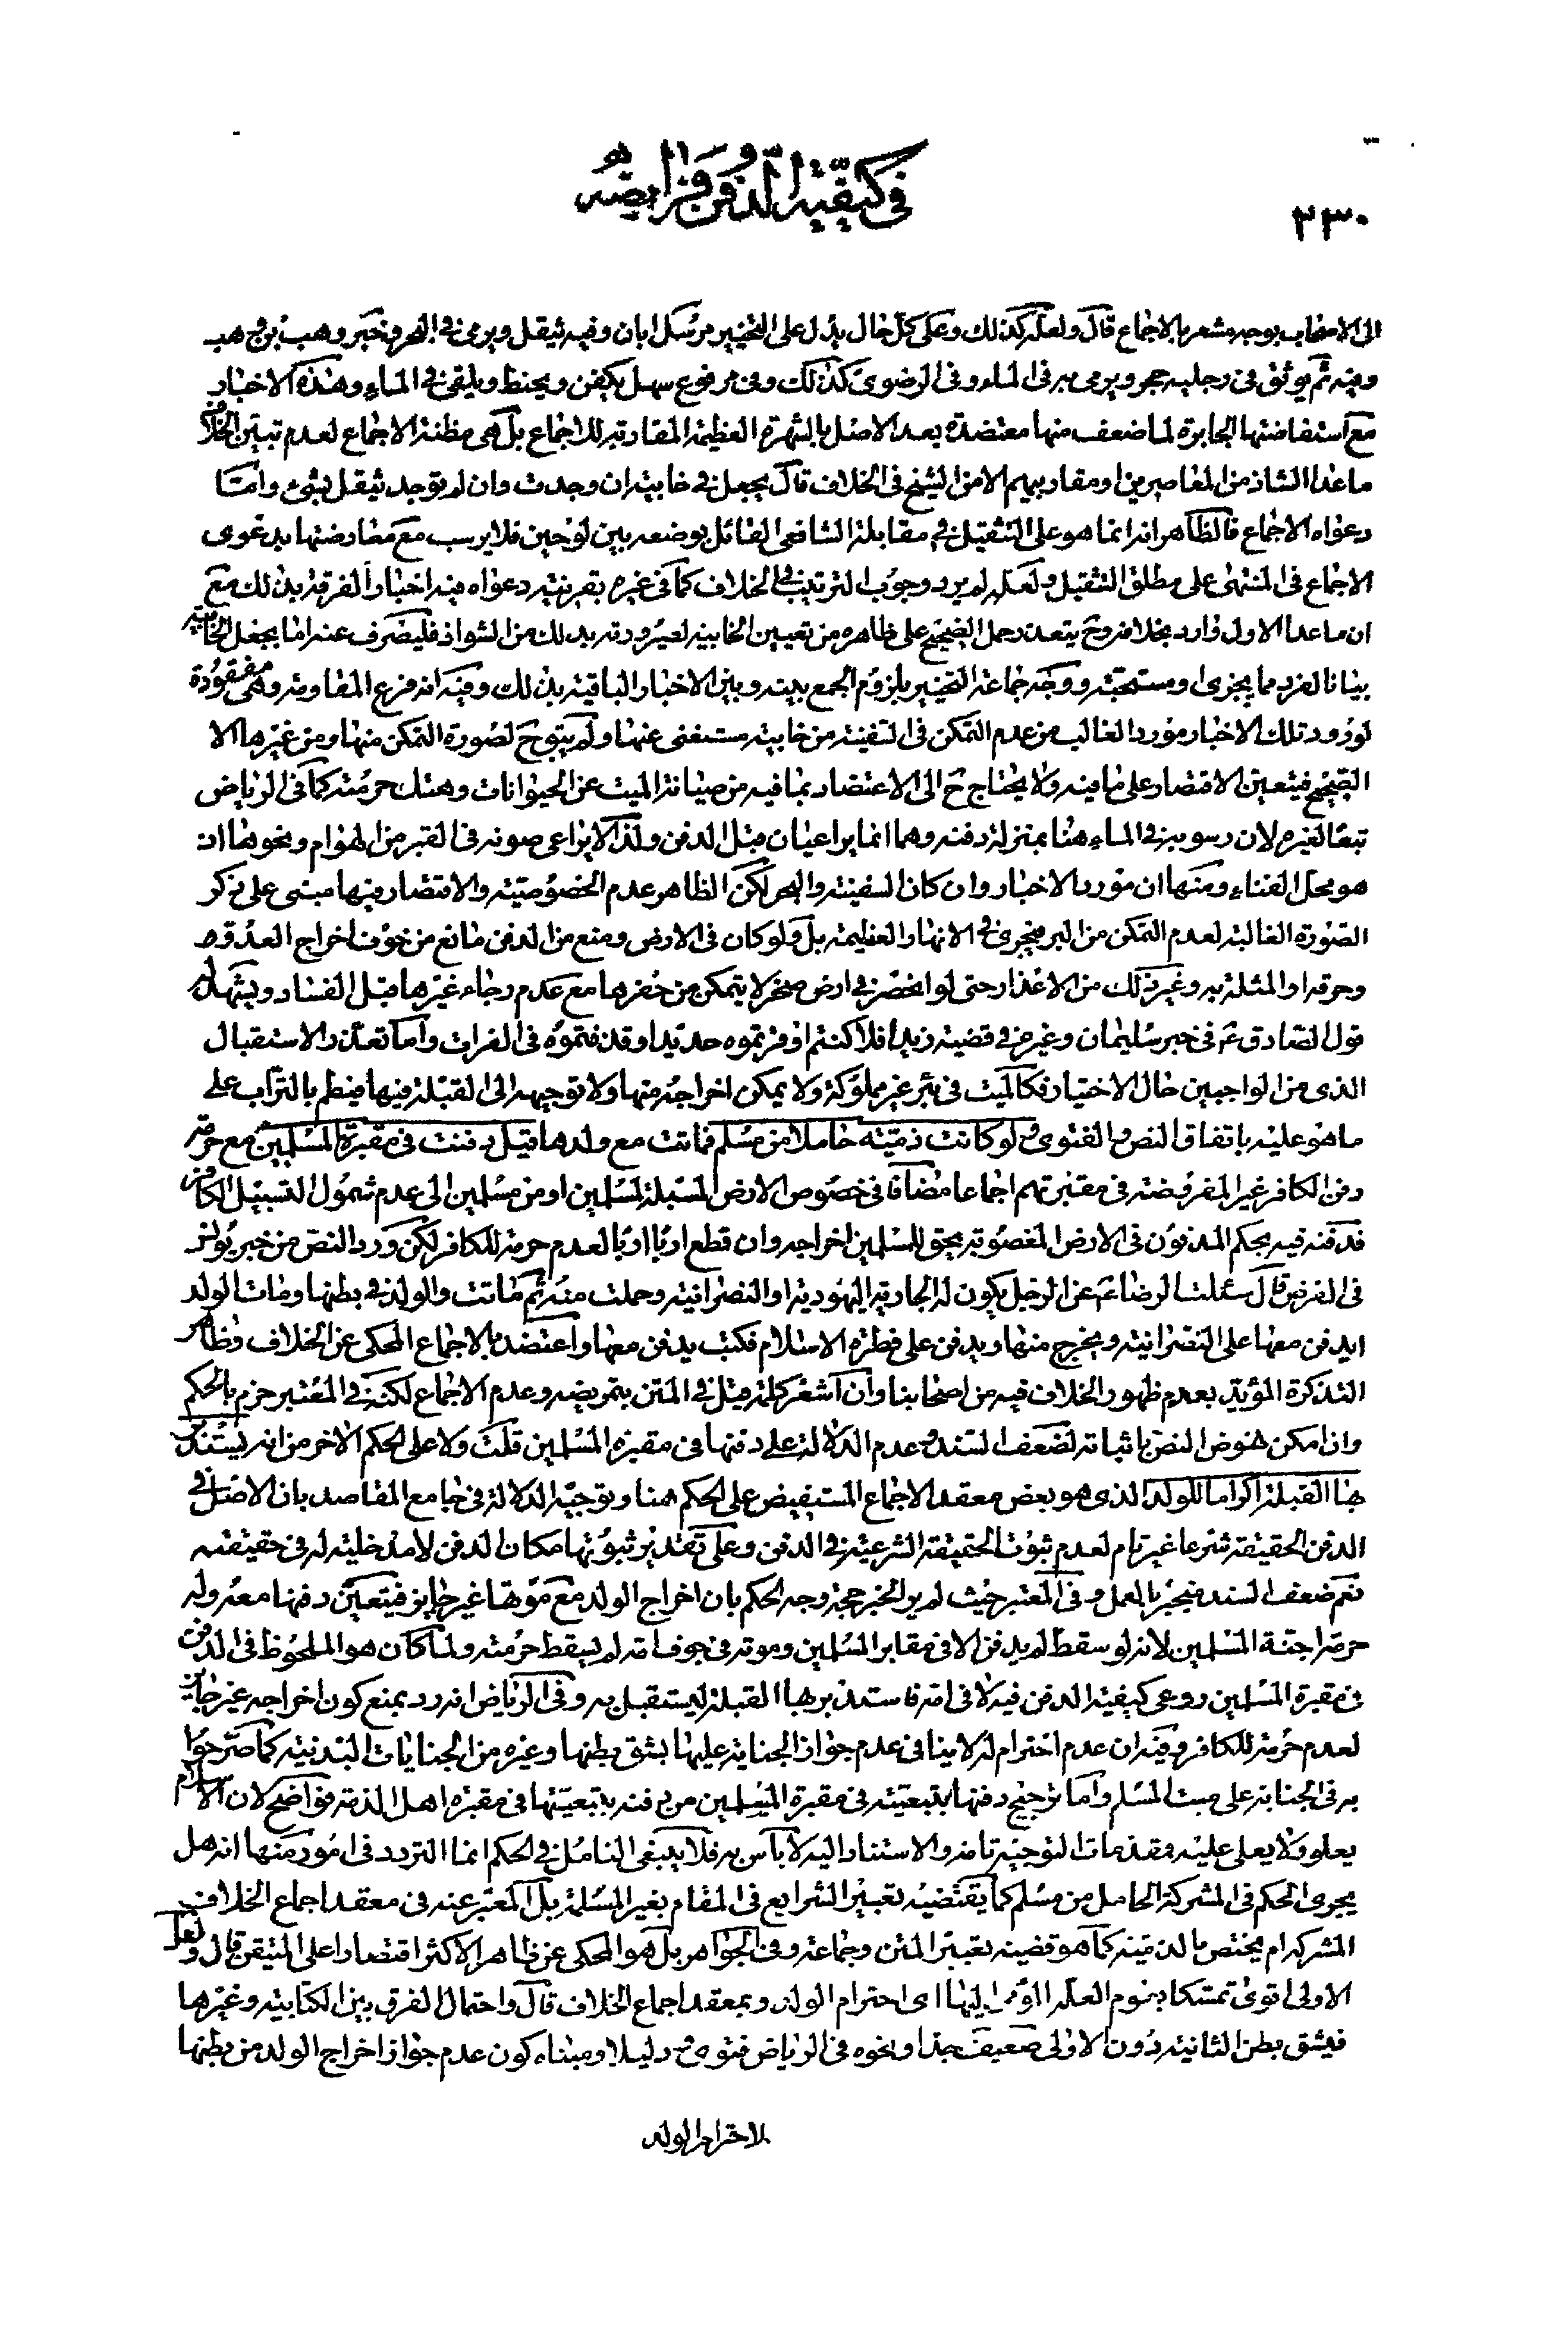 في كيفية الدفن وفرايضه
٢٣٠
الى الاصحاب بوجه مشعر بالاجماع قال ولعله كذلك وعلى كل حال يدل على التخيير مرسل ابان وفيه يثقل ويرمى في البحر وخبر وهب بن وهب
وفيه ثم يوثق في رجليه حجر ويرمى به في الماء وفي الرضوي كذلك وفي مرفوع سهل يكفن ويحنط ويلقى في الماء وهذه الاخبار
مع استفاضتها الجابرة لما ضعف منها معتضدة بعد الاصل بالشهرة العظيمة المقاربة للاجماع بل هي مظنة الاجماع لعدم تبين الخلاف
ما عدا الشاذ من المعاصرين او مقاربيهم الا من الشيخ في الخلاف قال يجعل في خابية ان وجدت وان لم توجد يثقل بشئ واما
دعواه الاجماع فالظاهر انه انما هو على التثقيل في مقابلة الشافعي القائل بوضعه بين لوحين فلا يرسب مع معارضتها بدعوى
الاجماع في المنتهى على مطلق التثقيل ولعله لم يرد وجوب الترتيب في الخلاف كما في غيره بقرينة دعواه فيه اخبار الفرقة بذلك مع
ان ما عدا الاول وارد بخلافه وح يتعذر حمل الصحيح على ظاهره من تعيين الخابية لصيرورته بذلك من الشواذ فليصرف عنه اما بجعل الخابية
بيانا لفرد مما يجزى او مستحبة ووجه جماعة التخيير بلزوم الجمع بينه وبين الاخبار الباقية بذلك وفيه انه فرع المقاومة وهي مفقودة
لورود تلك الاخبار مورد الغالب من عدم التمكن في السفينة من خابية مستغنى عنها ولم يبق ح لصورة التمكن منها ومن غيرها الا
الصحيح فيتعين الاقتصار على ما فيه ولا يحتاج ح الى الاعتضاد بما فيه من صيانة الميت عن الحيوانات وهتك حرمته كما في الرياض
تبعا لغيره لان رسوبه في الماء هنا بمنزلة دفنه وهما انما يراعيان قبل الدفن ولذا لا يراعى صونه في القبر من الهوام ونحوها اذ
هو محل الفناء ومنها ان مورد الاخبار وان كان السفينة والبحر لكن الظاهر عدم الخصوصية والاقتصار فيها مبنى على ذكر
الصورة الغالبة لعدم التمكن من البر فيجرى في الانهار العظيمة بل ولو كان في الارض ومنع من الدفن مانع من خوف اخراج العدو له
وحرقه او المثلة به وغير ذلك من الاعذار حتى لو انحصر في ارض صخر لا يتمكن من حفرها مع عدم رجاء غيرها قبل الفساد ويشهد له
قول الصادق ع في خبر سليمان وغيره في قضية زيد افلا كنتم اوقرتموه حديدا وقذفتموه في الفرات واما تعذر الاستقبال
الذى من الواجبين حال الاختيار فكالميت في بئر غير مملوكة ولا يمكن اخراجه منها ولا توجيهه الى القبلة فيها فيطم بالتراب على
ما هو عليه باتفاق النص والفتوى ولو كانت ذمية حاملا من مسلم فماتت مع ولدها قيل دفنت في مقبرة المسلمين مع حرمة
دفن الكافر غير المفروضة في مقبرتهم اجماعا مضافا في خصوص الارض المسبلة لمسلمين او من مسلمين الى عدم شمول التسبيل الكافر
فدفنه فيه بحكم المدفون في الارض المغصوبة بحق للمسلمين اخراجه وان قطع اربا اربا لعدم حرمة للكافر لكن ورد النص من خبر يونس
في الفرض قال سئلت الرضا ع عن الرجل يكون له الجارية اليهودية او النصرانية وحملت منه ثم ماتت والولد في بطنها ومات الولد
ايدفن معها على النصرانية ويخرج منها ويدفن على فطرة الاسلام فكتب يدفن معها واعتضد بالاجماع المحكى عن الخلاف وظاهر
التذكرة المؤيد بعدم ظهور الخلاف فيه من اصحابنا وان اشعر كلمة قيل في المتن بتمريضه وعدم الاجماع لكنه في المعتبر جزم بالحكم
وان امكن هنوض النص باثباته لضعف السند وعدم الدلالة على دفنها في مقبرة المسلمين قلت ولا على الحكم الاخر من انه يستدبر
بها القبلة اكراما للولد الذى هو بعض معقد الاجماع المستفيض على الحكم هنا وتوجيه الدلالة في جامع المقاصد بان الاصل في
الدفن الحقيقة شرعا غير تام لعدم ثبوت الحقيقة الشرعية في الدفن وعلى تقدير ثبوتها مكان الدفن لا مدخلية له في حقيقته
نعم ضعف السند منجبر بالعمل وفي المعتبر حيث لم ير الخبر حجة وجه الحكم بان اخراج الولد مع موتها غير جايز فيتعين دفنها معه وله
حرمة اجنة المسلمين لانه لو سقط لم يدفن الا في مقابر المسلمين وموته في جوف امه لم يسقط حرمته ولما كان هو الملحوظ في الدفن
في مقبرة المسلمين روعى كيفية الدفن فيه لا في امه فاستدبر بها القبلة ليستقبل به وفي الرياض انه رد بمنع كون اخراجه غير جايز
لعدم حرمة للكافر وفيه ان عدم احترام له لا ينافى عدم جواز الجناية عليها بشق بطنها وغيره من الجنايات البدنية كما صرحوا
به في الجناية على ميت المسلم واما ترجيح دفنها بتبعيته في مقبرة المسلمين من دفنه بتبعيتها في مقبرة اهل الذمة فواضح لان الاسلام
يعلو ولا يعلى عليه فمقدمات التوجيه تامة والاستناد اليه لا باس به فلا ينبغى التامل في الحكم انما التردد في امور منها انه هل
يجرى الحكم في المشركة الحامل من مسلم كما يقتضيه تعبير الشرايع في المقام بغير المسلمة بل المعتبر عنه في معقد اجماع الخلاف
المشركة ام يختص بالذمية كما هو قضية تعبير المتن وجماعة وفي الجواهر بل هو المحكى عن ظاهر الاكثر اقتصارا على المتيقن قال ولعل
الاولى اقوى تمسكا بعموم العلة المومى اليها اى احترام الولد وبمعقد اجماع الخلاف قال واحتمال الفرق بين الكتابية وغيرها
فيشق بطن الثانية دون الاولى ضعيف جدا ونحوه في الرياض فتوى ودليلا ومبناه كون عدم جواز اخراج الولد من بطنها
لاحترام الولد